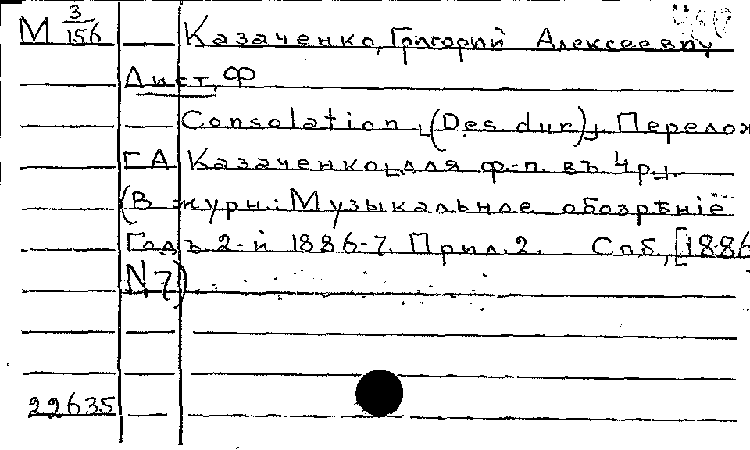 М 3/156 Казаченко, Григорий Алексеевич
Лист, Ф
Consolation, (Des dur), Перелож
ГА Казаченко, для ф-п. въ 4 р.
(В журн: Музыкальное обозрѣніе
Годъ 2-й 1886-7. Прил. 2. Спб, [1886
N 7)
22635